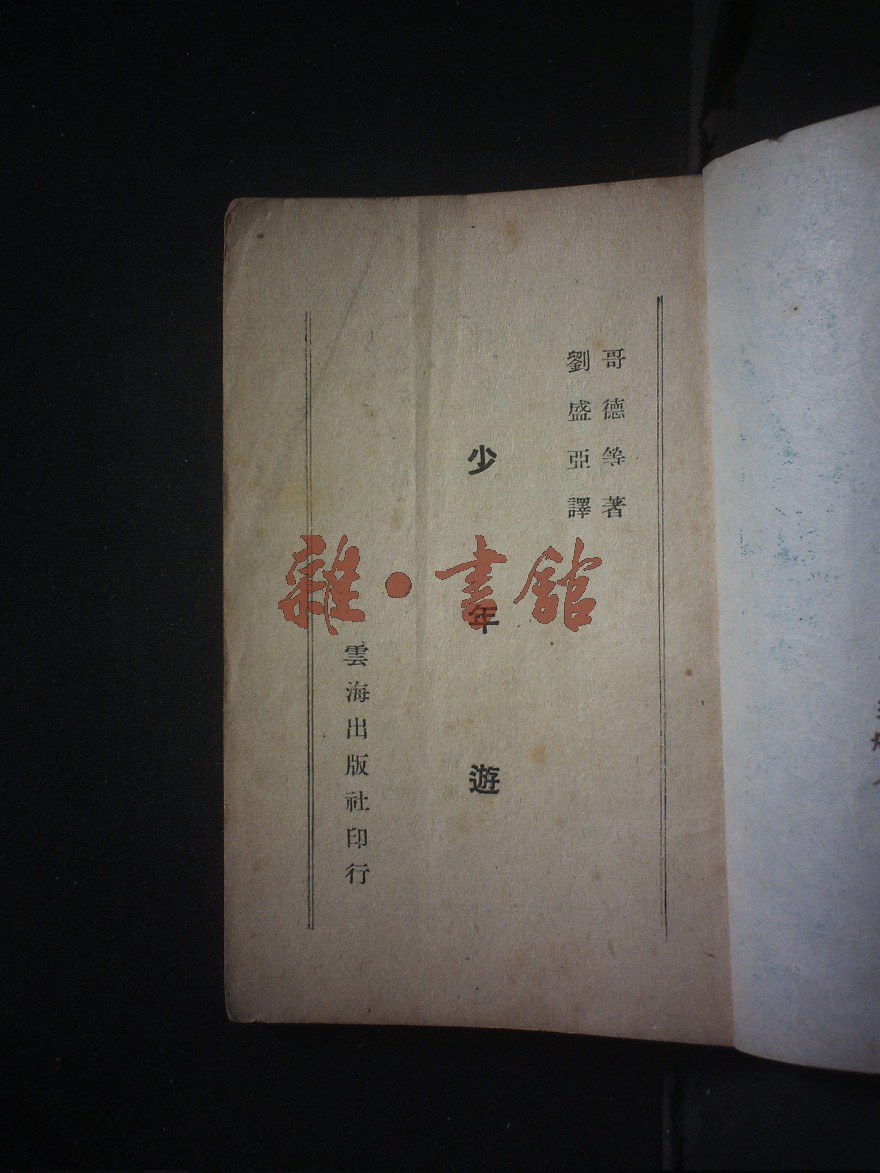 哥德等著
劉盛亞譯
少年遊
雲海出版社印行
雜·書館